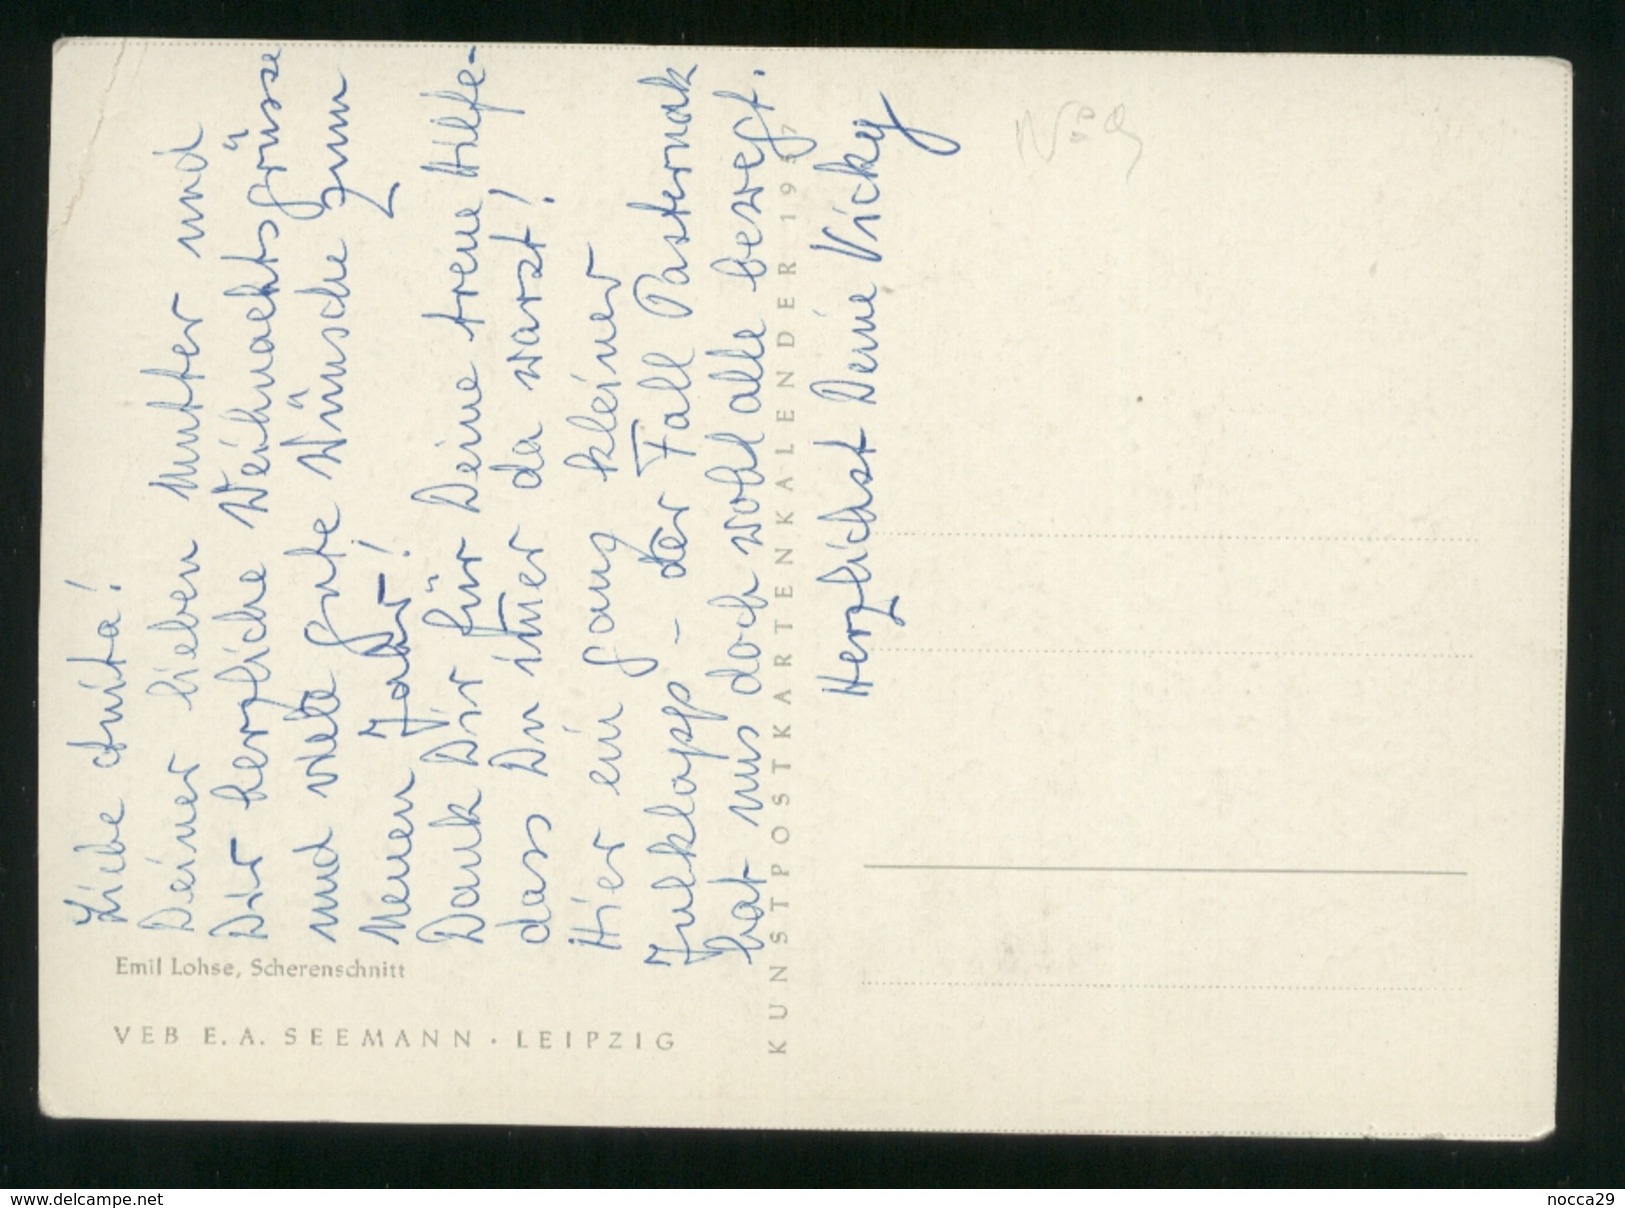 Liebe Anita!
Deiner lieben Mutter und
Dir herzliche Weihnachtsgrüsse
und viele gute Wünsche zum
Neuen Jahr!
Dank Dir für Deine treue Hilfe-
dass Du immer da warst!
Hier ein ganz kleiner
Julklapp - der Fall Pasternak
hat uns doch wohl alle bewegt.
Herzlichst Deine Vicky
Emil Lohse, Scherenschnitt
VEB E. A. SEEMANN · LEIPZIG
KUNSTPOSTKARTENKALENDER 1957
www.delcampe.net
nocca29